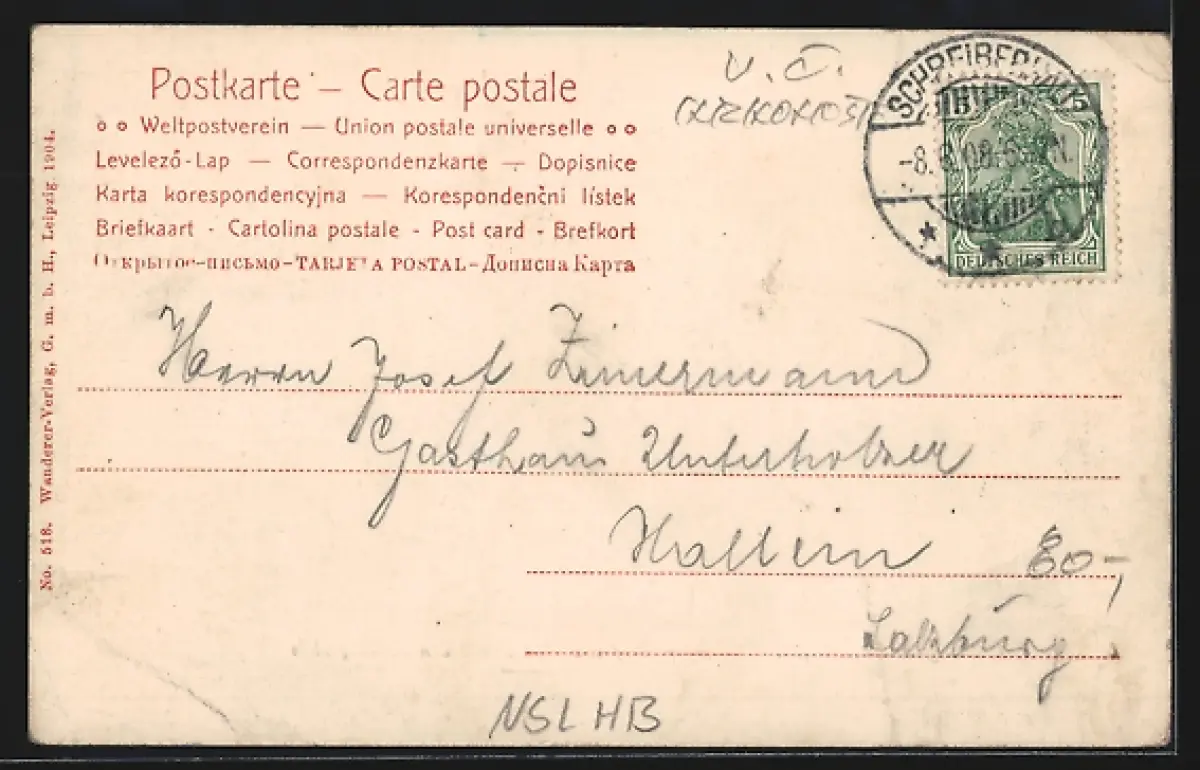 Postkarte – Carte postale
Weltpostverein — Union postale universelle
Levelező-Lap — Correspondenzkarte — Dopisnice
Karta korespondencyjna — Korespondenčni lístek
Briefkaart - Cartolina postale - Post card - Brefkort
Открытое-письмо-TARJETA POSTAL-Дописна Карта
No. 518. Wanderer-Verlag, G. m. b. H., Leipzig 1904.
V. Č.
KRKONOŠ
SCHREIBERHAU
-8. 08. N.
5
DEUTSCHES REICH
Herrn Josef Zimermann
Gasthaus Unterholzer
Hallein
80,-
Salzburg
NSL HB